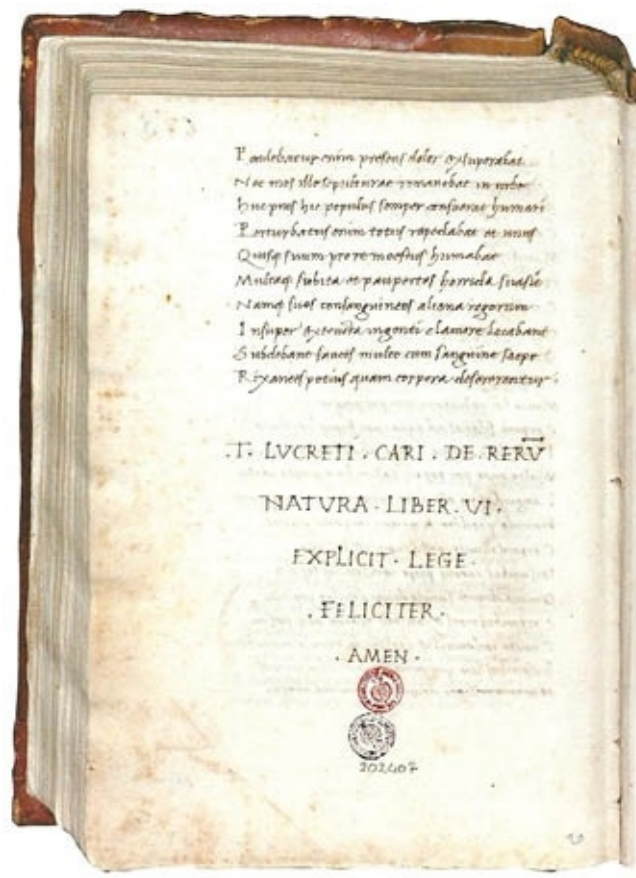 Pendebatur enim presens dolor &superabat
Nec mos ille sepulturae remanebat in urbe
huc hic populus semper consuerat humari
Perturbatus enim totus repedabat et unus
Quisq suum pro re moestus humabat
Multaq subita et paupertas horrida suasit
Namq suos consanguineos aliena rogorum
Insuper &tructa ingenti clamore locabant
Subdebant multo cum sanguine saepe
Rixantes potius quam corpora desererentur
.T. LVCRETI . CARI . DE . RERV̅
NATVRA . LIBER . VI .
EXPLICIT . LEGE .
. FELICITER .
. AMEN .
202407